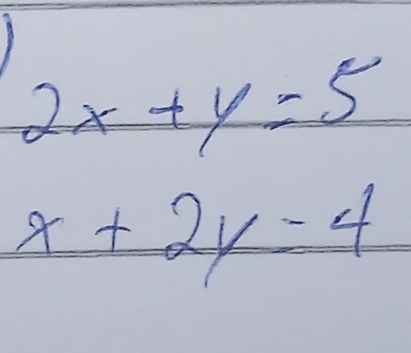 )
2x + y = 5
x + 2y = 4